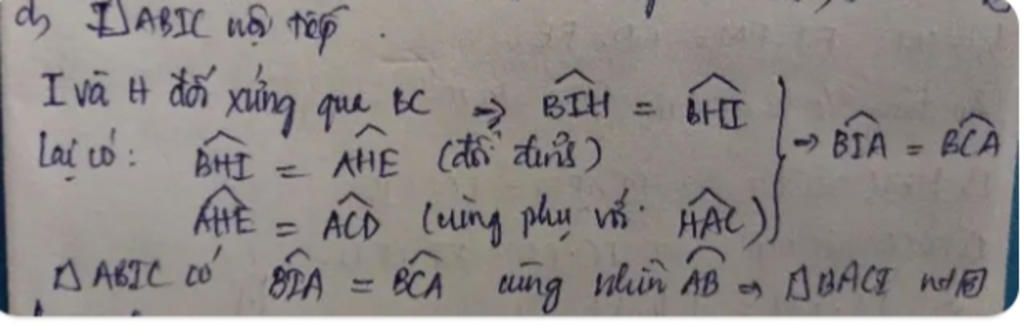 d) ▱ABIC nội tiếp.
I và H đối xứng qua BC ⇒ \widehat{BIH} = \widehat{BHI}
Lại có: \widehat{BHI} = \widehat{AHE} (đối đỉnh)
\widehat{AHE} = \widehat{ACD} (cùng phụ với \widehat{HAC})
} ⇒ \widehat{BIA} = \widehat{BCA}
▱ABIC có \widehat{BIA} = \widehat{BCA} cùng nhìn \widehat{AB} ⇒ ▱BACI nt